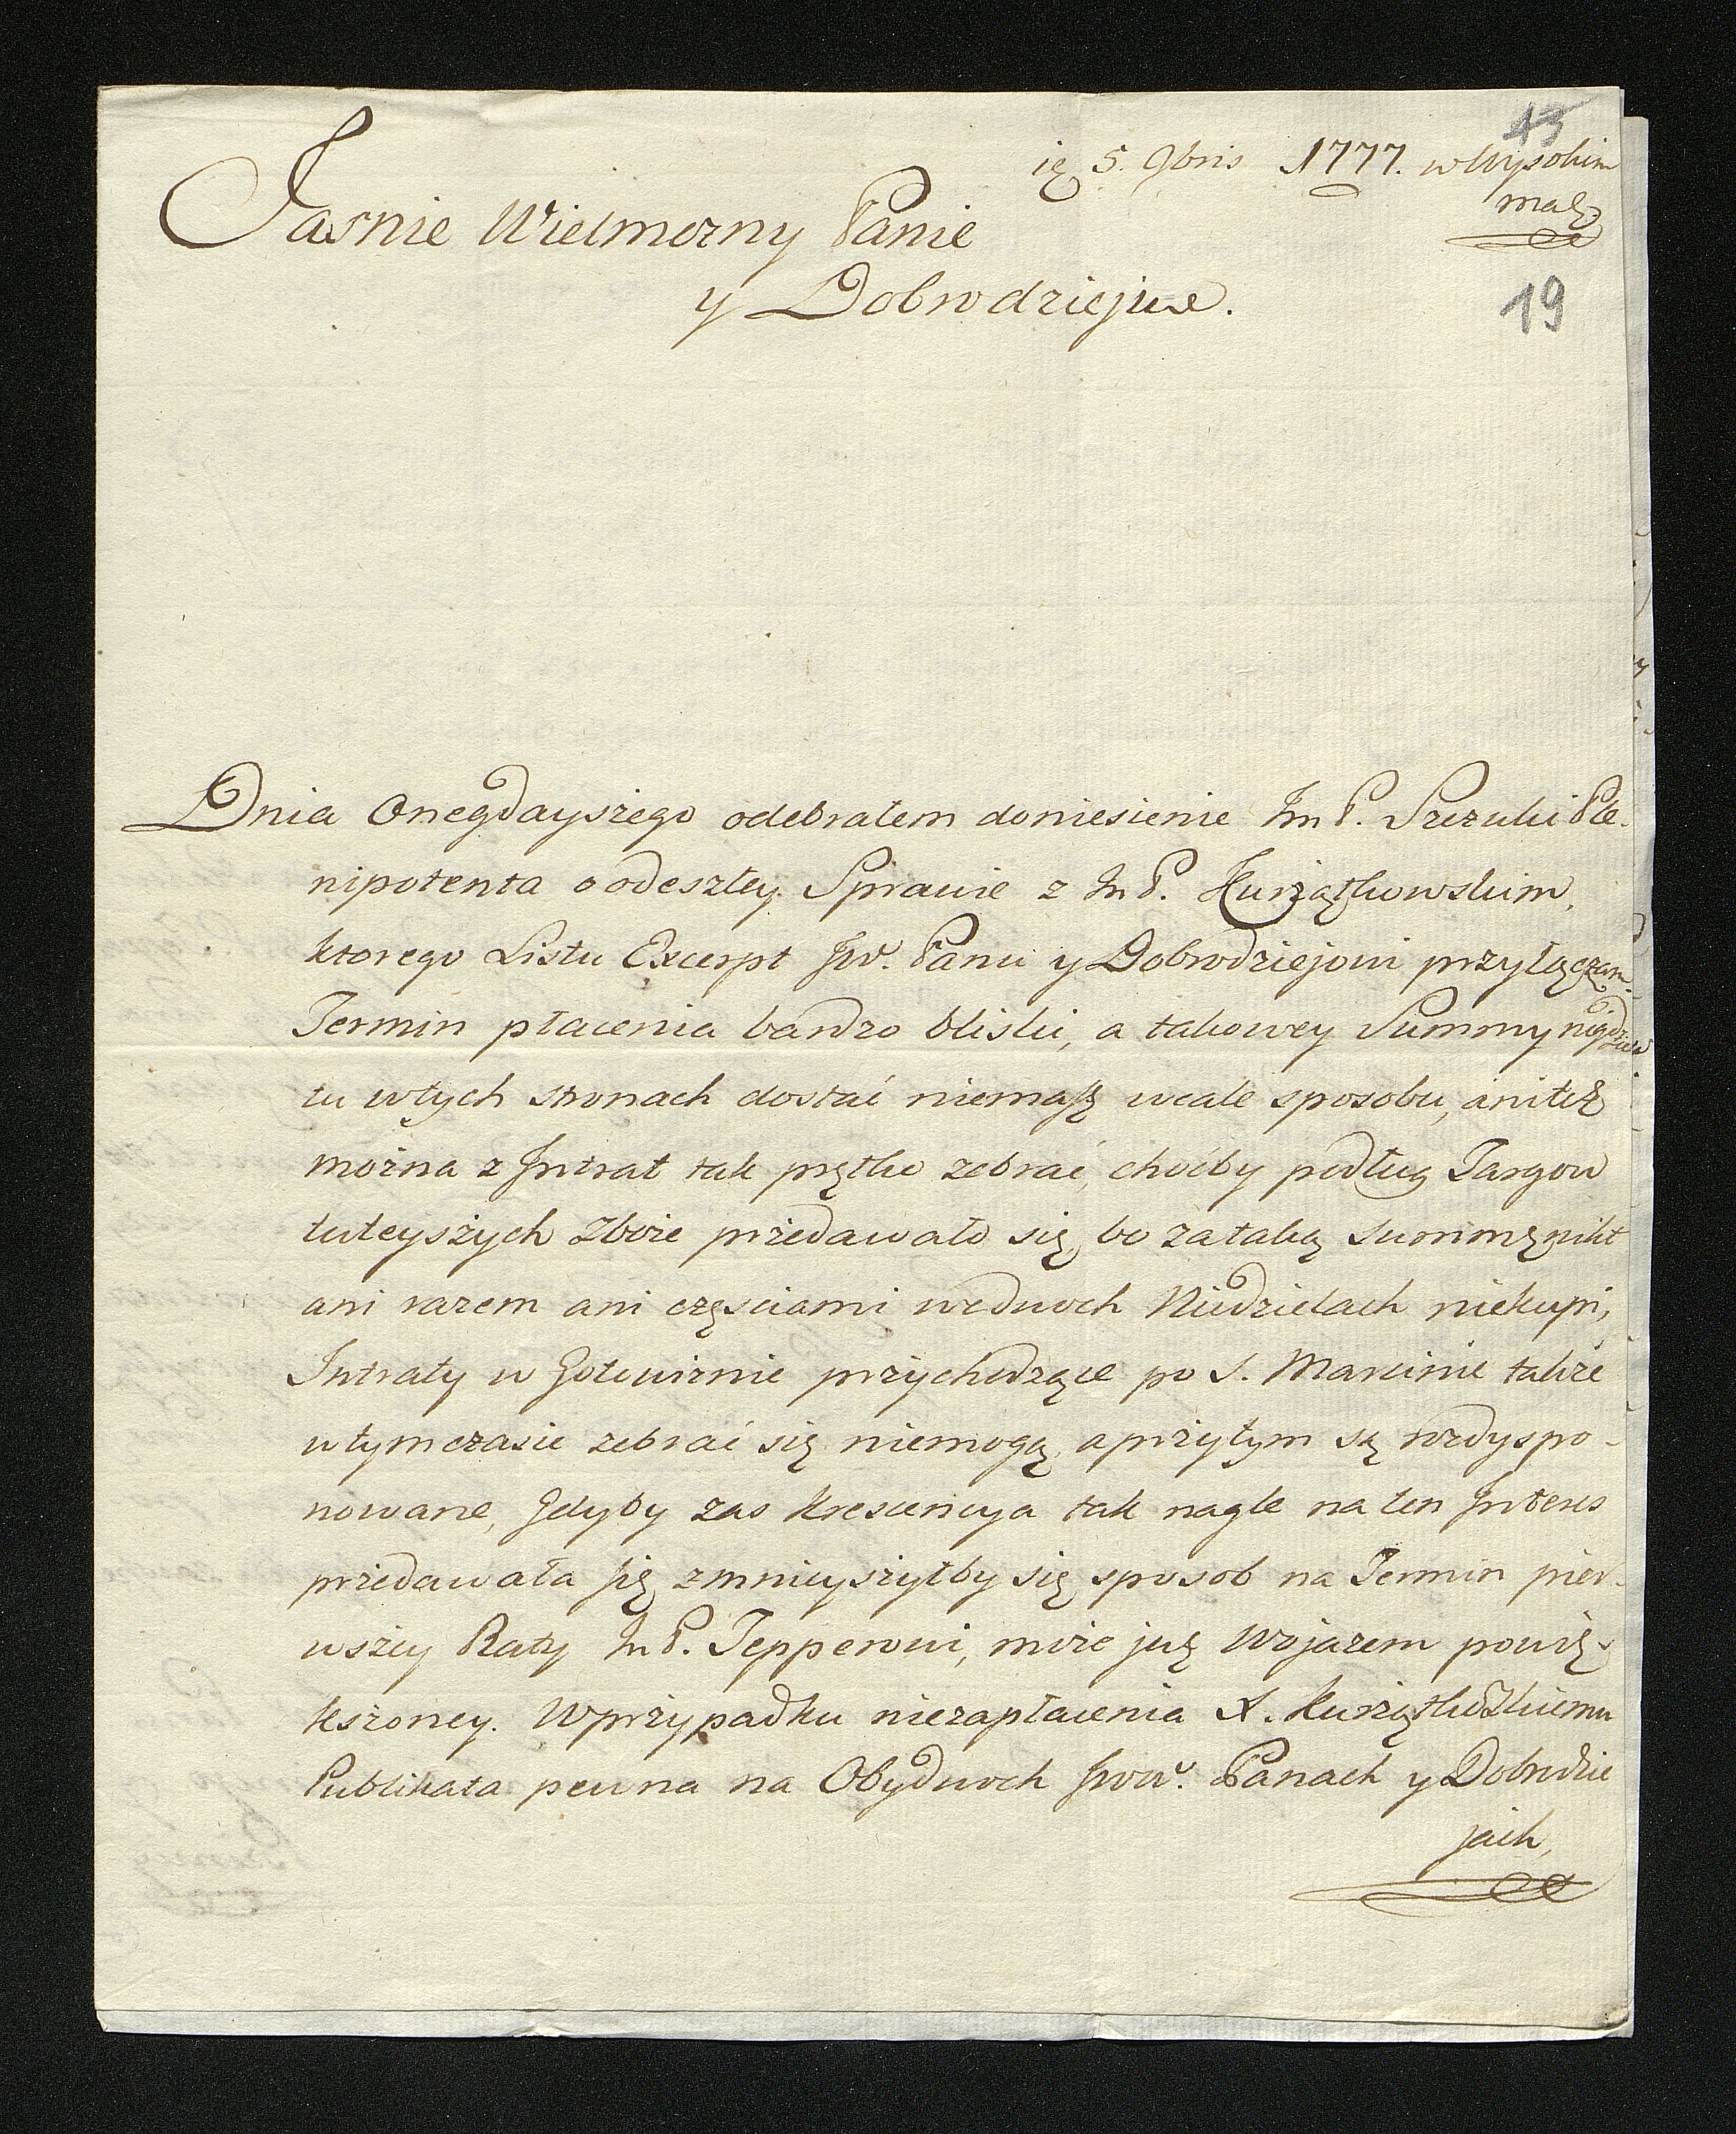 13
5. 9bris 1777. w Wysokim
maz
Jasnie Wielmozny Panie
y Dobrodzieju.
19
Dnia Onegdayszego odebrałem doniesienie Im P. Szczuki Ple-
nipotenta o odeszłey Sprawie z Im P. Kurządkowskim,
ktorego Listu Excerpt JW. Panu y Dobrodziejowi przyłączam.
Termin płacenia bardzo bliski, a takowey Summy nigdzie
tu wtych stronach dostać niemasz wcale sposobu, aniteż
można z Intrat tak prętko zebrać, choćby podług Targow
tuteyszych zboże przedawało się, bo zataką Summę nikt
ani razem ani częsciami wedwoch Niedzielach niekupi,
Intraty w Gotowiznie przychodzące po S. Marcinie także
wtymczasie zebrać się niemogą, aprzytym są rozdyspo-
nowane, Gdyby zas krescencya tak nagle na ten Interes
przedawała się zmnieyszyłby się sposob na Termin pier-
wszey Raty Im P. Tepperowi, może już Wojażem powię-
kszoney. Wprzypadku niezapłacenia X. Kurządkowskiemu
Publikata pewna na Obydwoch JWW. Panach y Dobrodzie
jach,